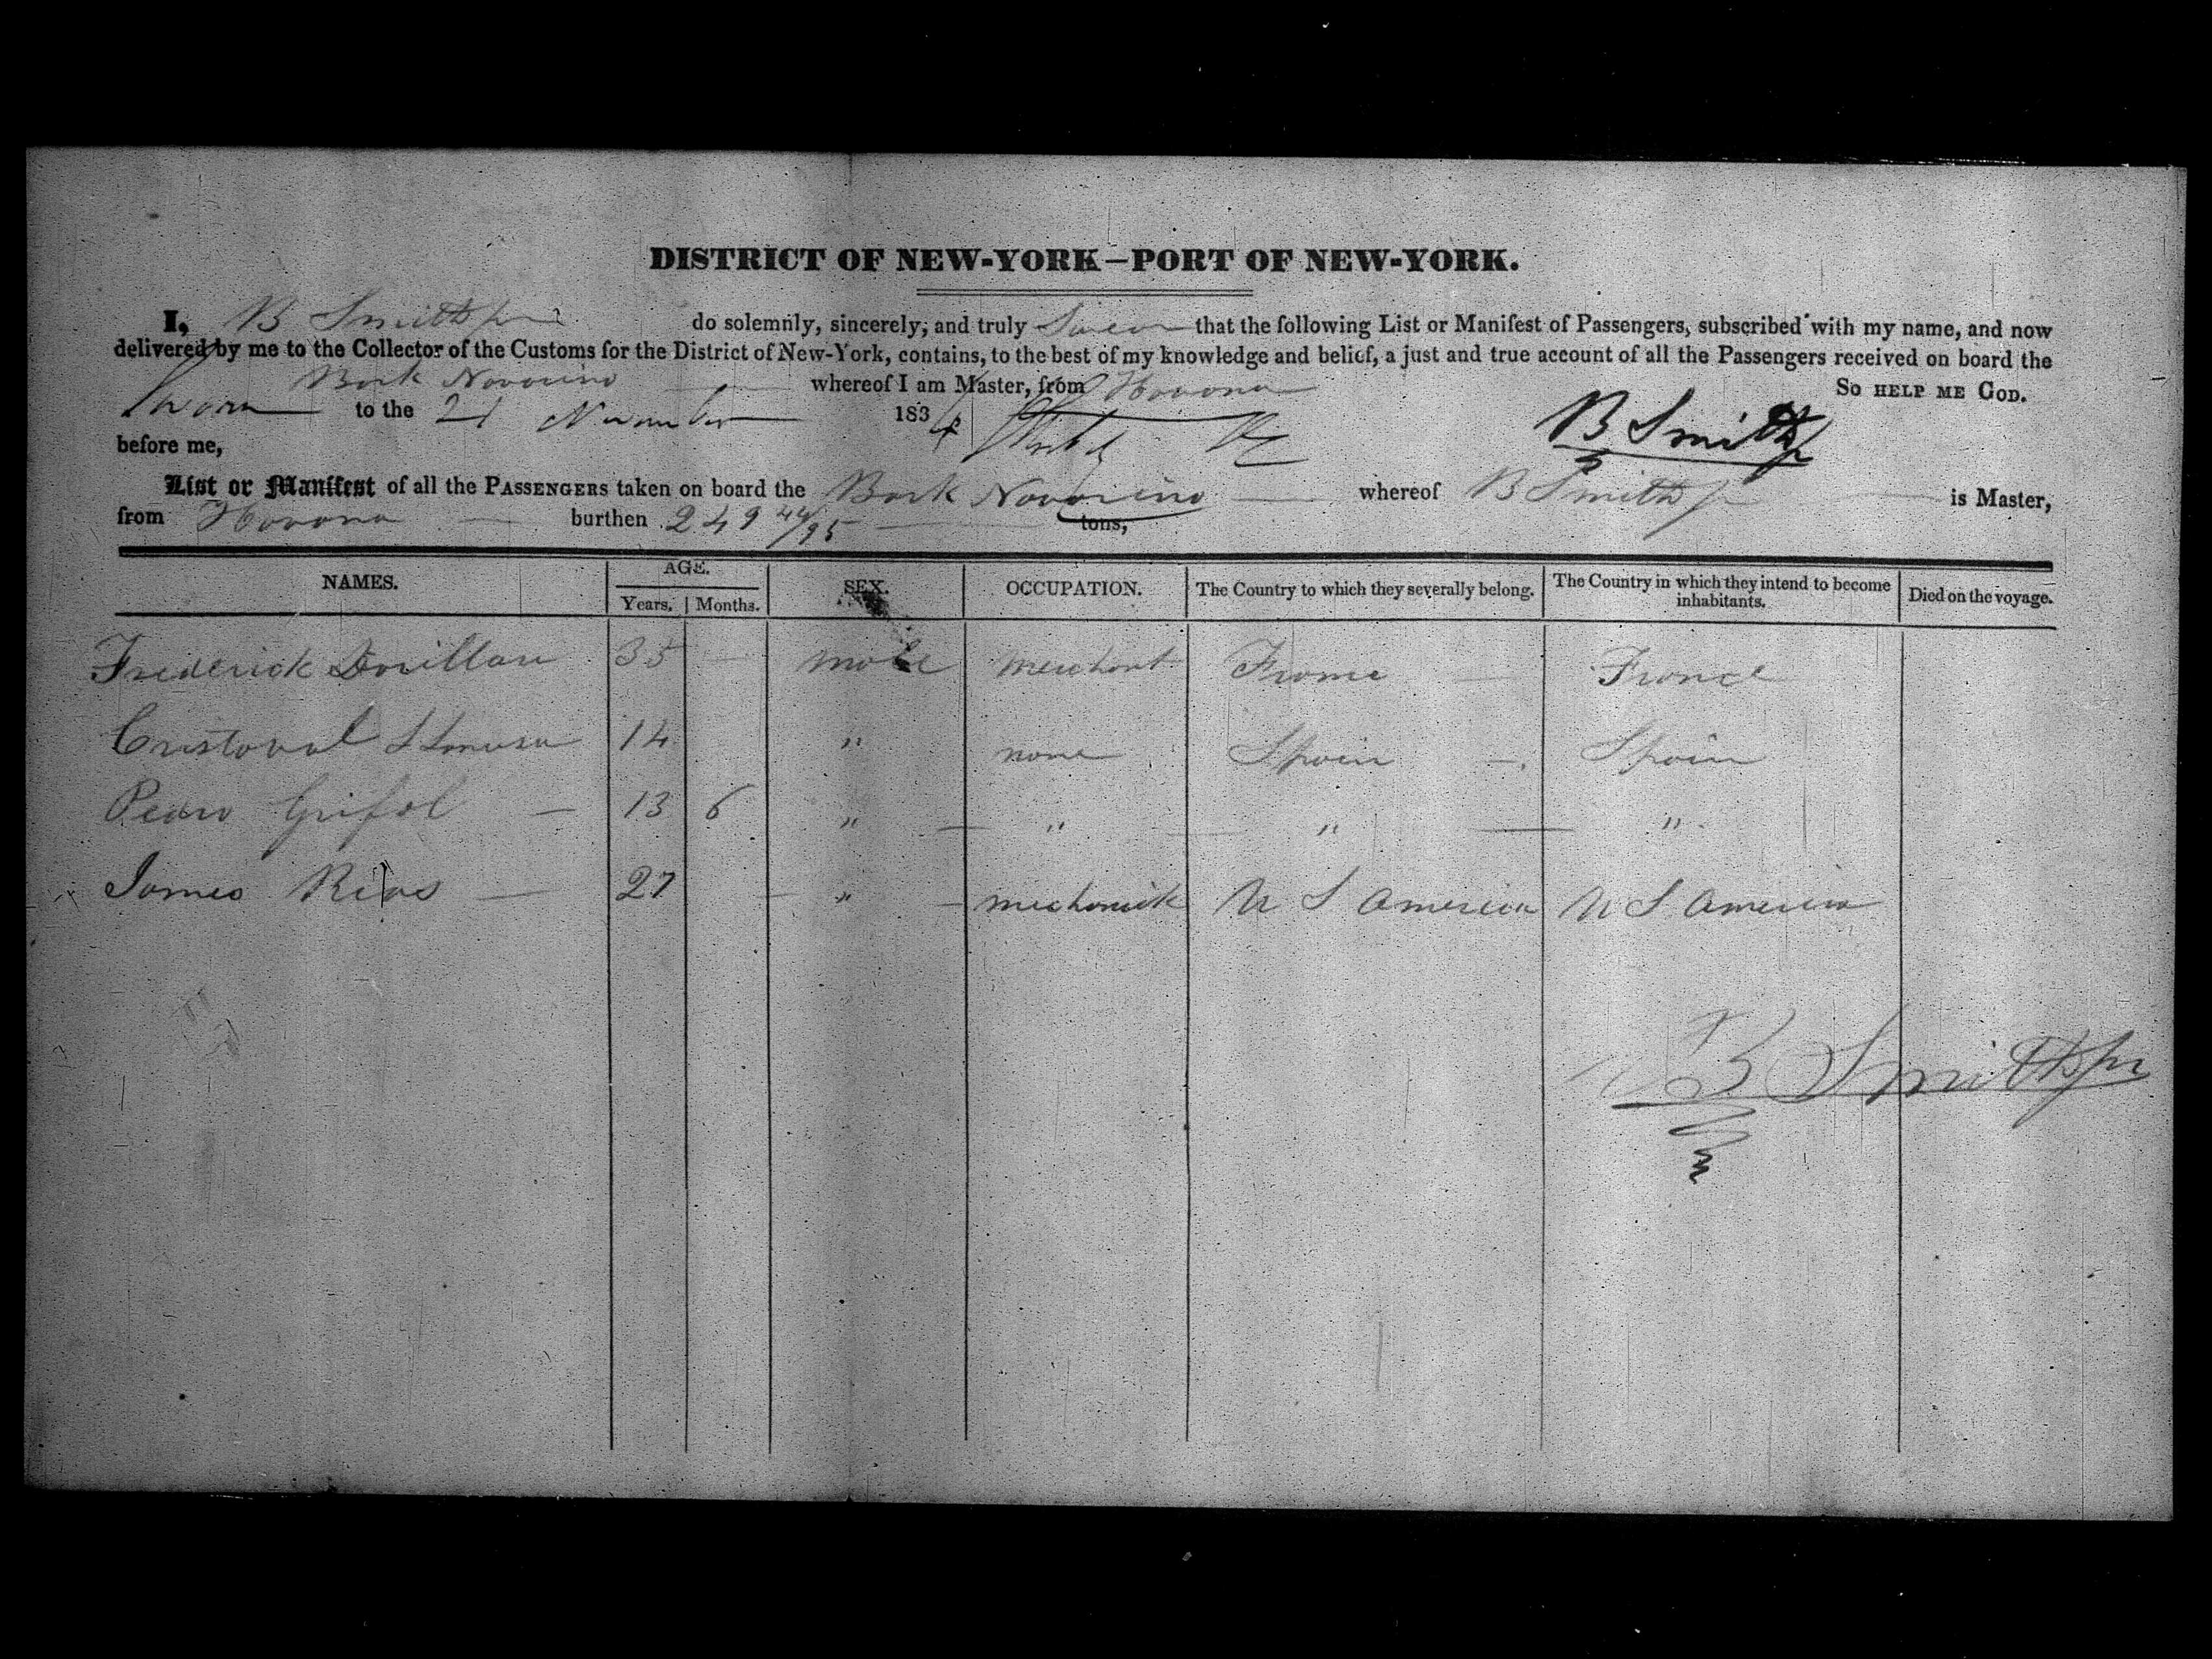 DISTRICT OF NEW-YORK—PORT OF NEW-YORK.
I, B Smith jr do solemnly, sincerely, and truly Swear that the following List or Manifest of Passengers, subscribed with my name, and now
delivered by me to the Collector of the Customs for the District of New-York, contains, to the best of my knowledge and belief, a just and true account of all the Passengers received on board the
Bark Navarino whereof I am Master, from Havana So HELP ME GOD.
Sworn to the 21 November 183 B Smith jr
before me,
List or Manifest of all the PASSENGERS taken on board the Bark Navarino whereof B Smith jr is Master,
from Havana burthen 249 44/95 tons,
NAMES. AGE. Years. Months. SEX. OCCUPATION. The Country to which they severally belong. The Country in which they intend to become inhabitants. Died on the voyage.
Frederick 35 male merchant France France
Cristoval 14 " none Spain Spain
Pedro Grifol 13 6 " " " "
James Rias 27 " mechanick U S America U S America
B Smith jr